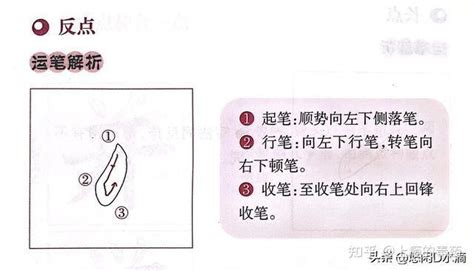 反点
运笔解析
①
②
③
❶ 起笔:顺势向左下侧落笔。
❷ 行笔:向左下行笔,转笔向
右下顿笔。
❸ 收笔:至收笔处向右上回锋
收笔。
头条 @悠闲D小滴